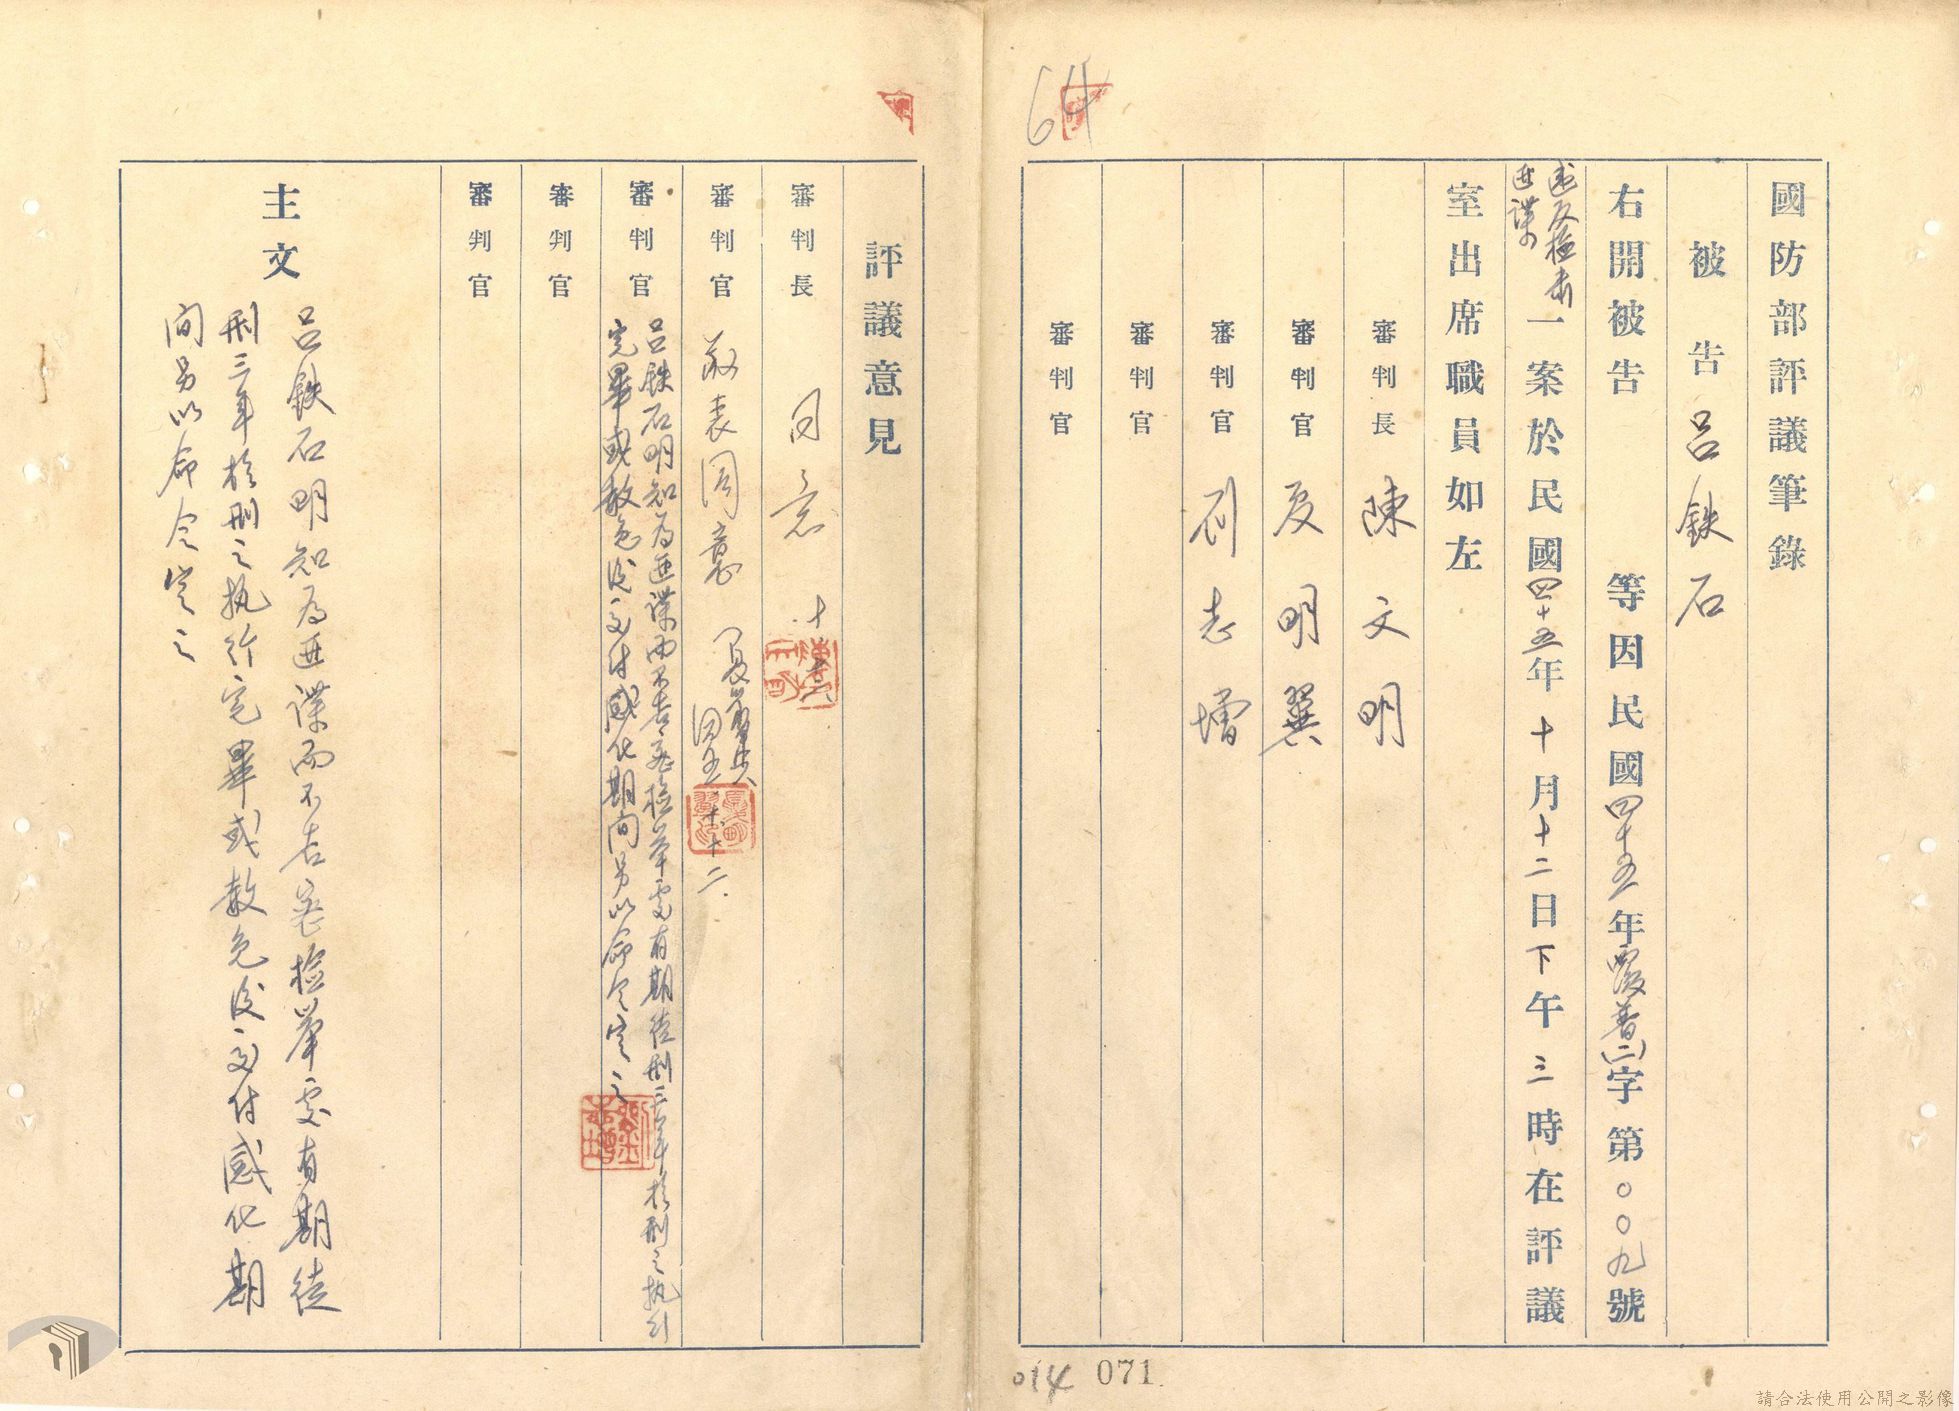 64
國防部評議筆錄
被告 呂鉄石
右開被告 等因民國四十五年覆普(二)字第〇〇九號
違反檢肅
匪諜
一案於民國四十五年十月十二日下午三時在評議
室出席職員如左
審判長 陳文明
審判官 夏明翼
審判官 刘志增
審判官
審判官
014 071
評議意見
審判長 同意 十
審判官 敬表同意 夏明翼 四五、十、十二、
審判官 呂鉄石明知為匪諜而不告密檢舉處有期徒刑三年於刑之執行
完畢或赦免後交付感化期間另以命令定之
劉志增
審判官
審判官
主文
呂鉄石明知為匪諜而不告密檢舉處有期徒
刑三年於刑之執行完畢或赦免後交付感化期
間另以命令定之
請合法使用公開之影像